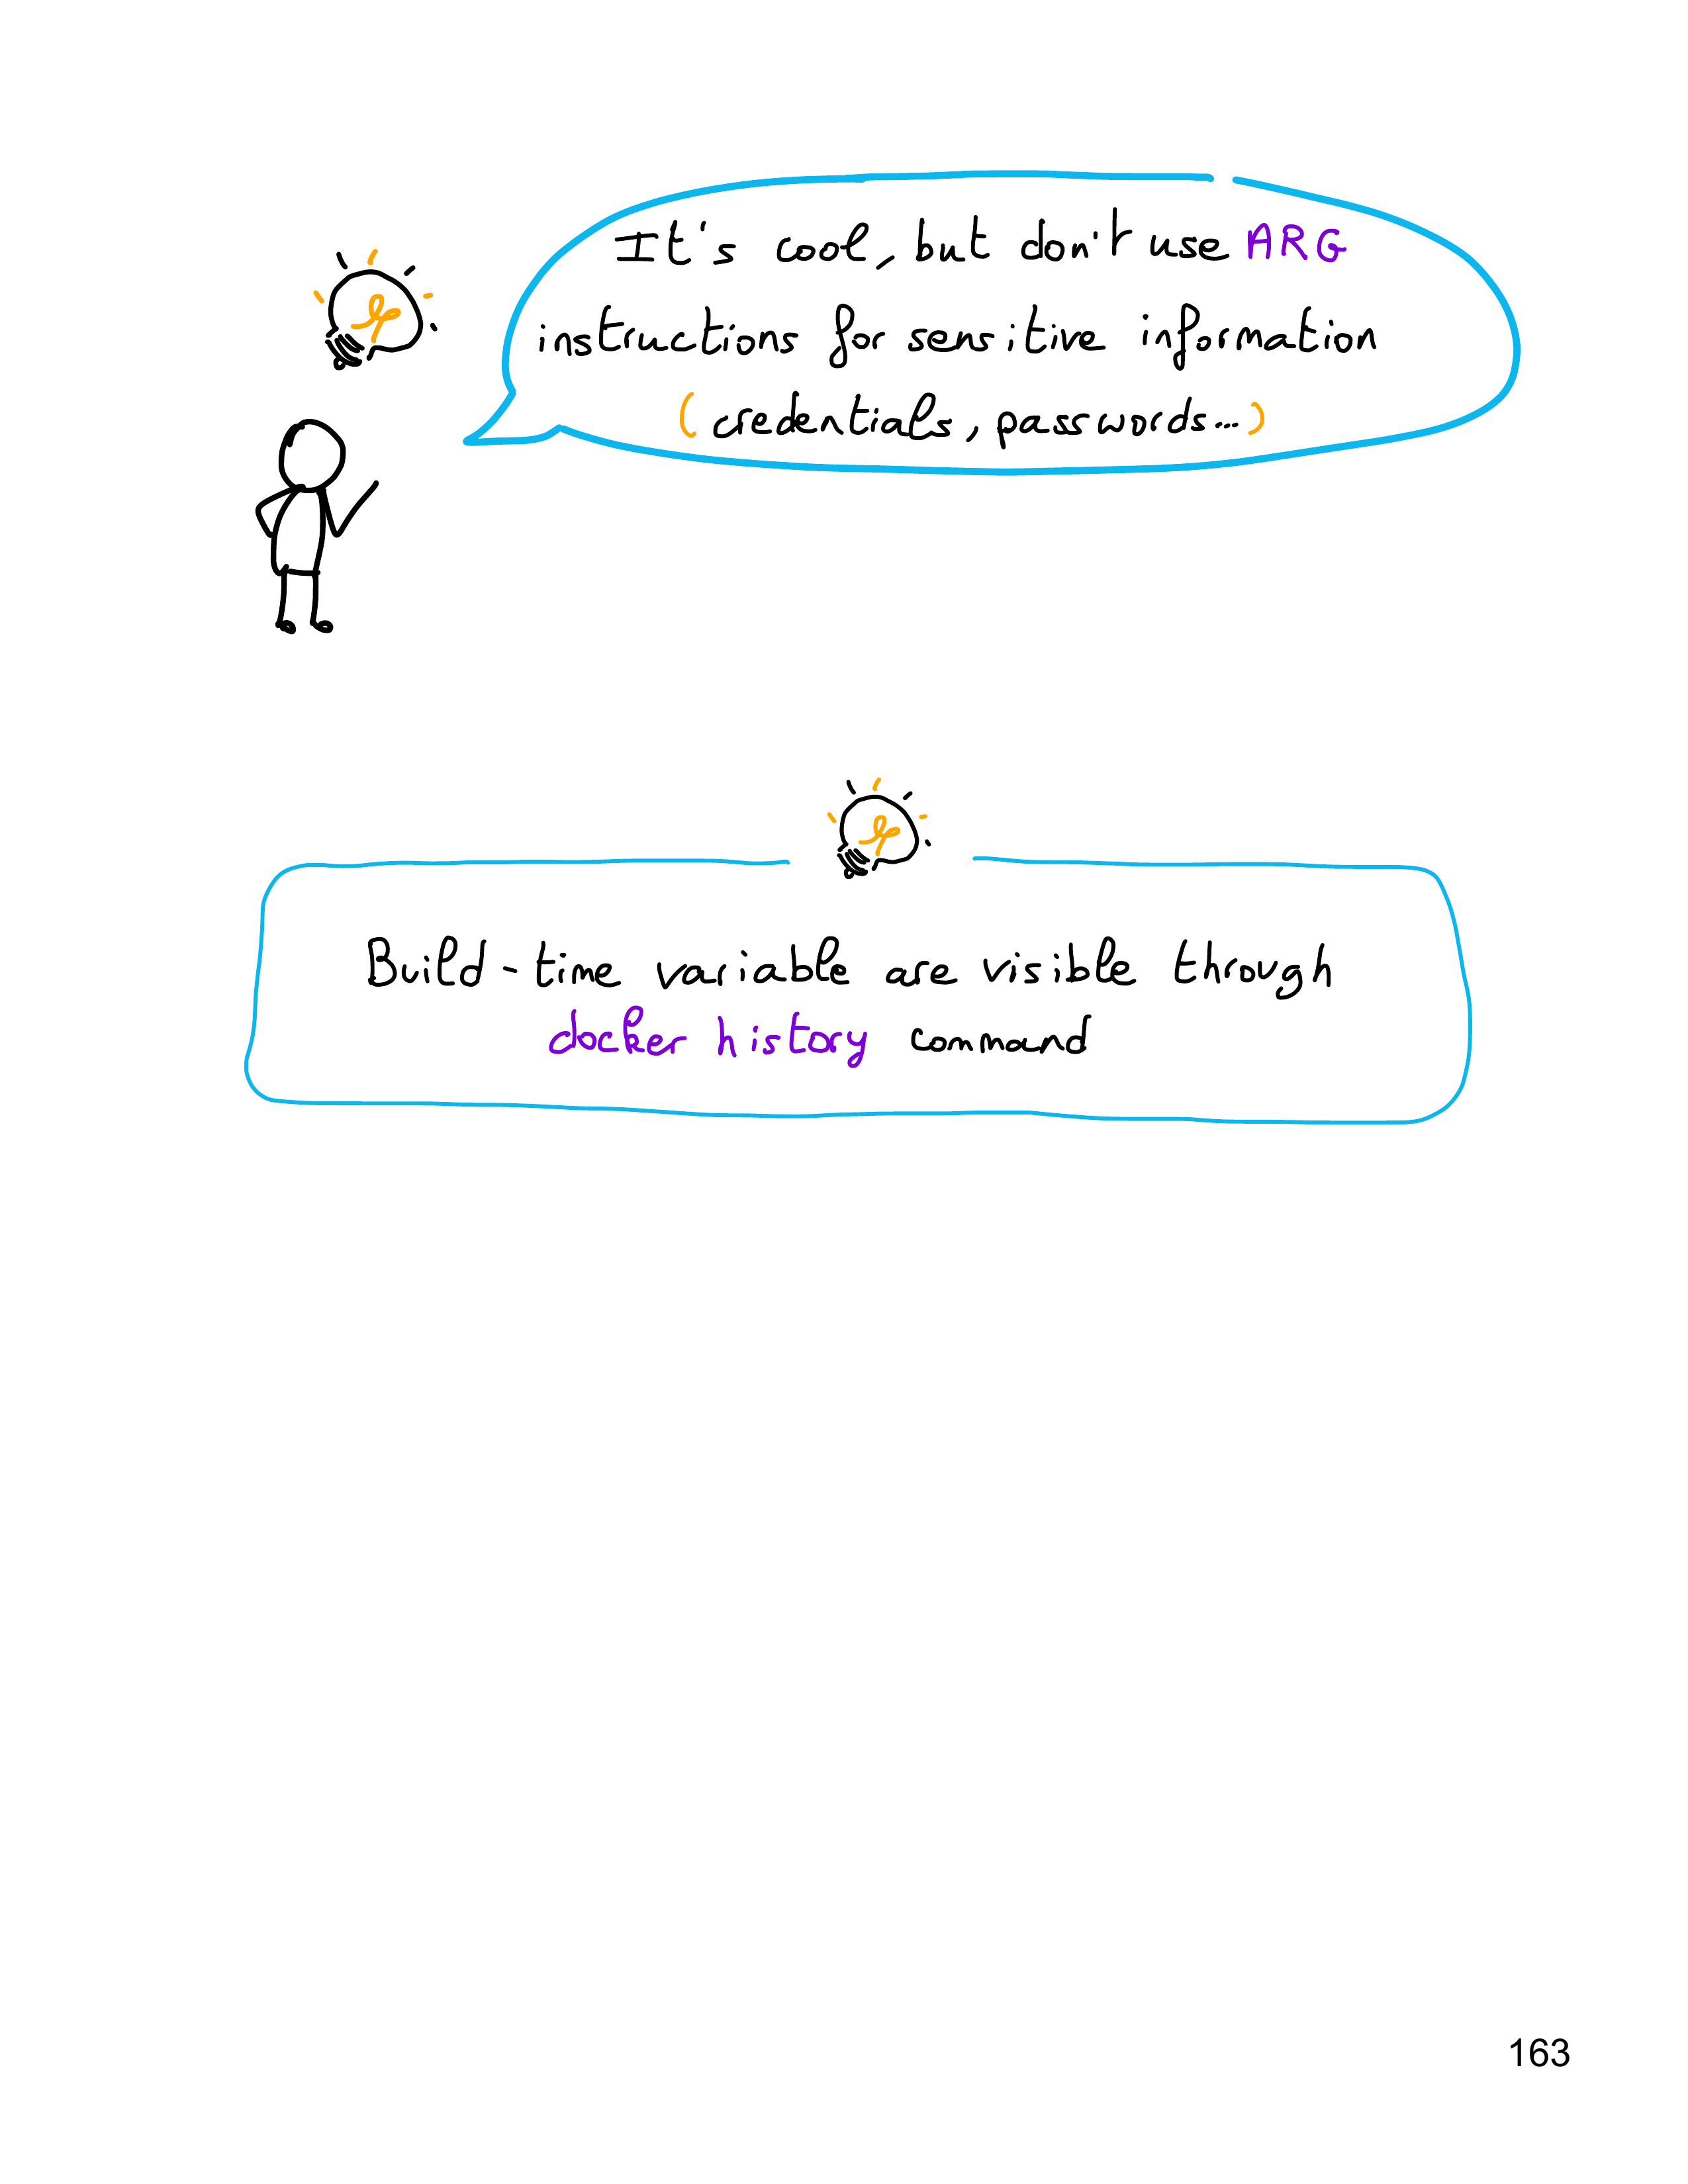 It's cool, but don't use ARG
instructions for sensitive information
(credentials, passwords...)
Build-time variable are visible through
docker history command
163